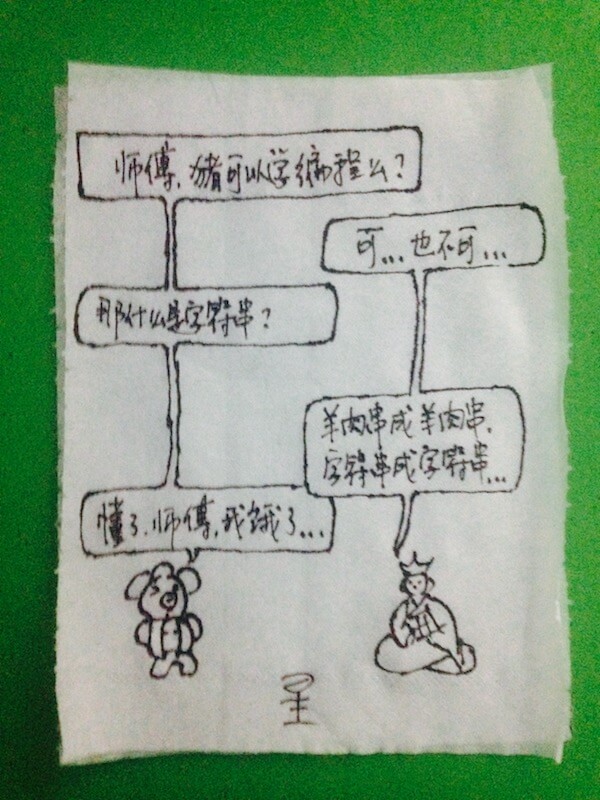 师傅，猪可以学编程么？
可...也不可...
那什么是字符串？
羊肉串成羊肉串，
字符串成字符串...
懂了，师傅，我饿了...